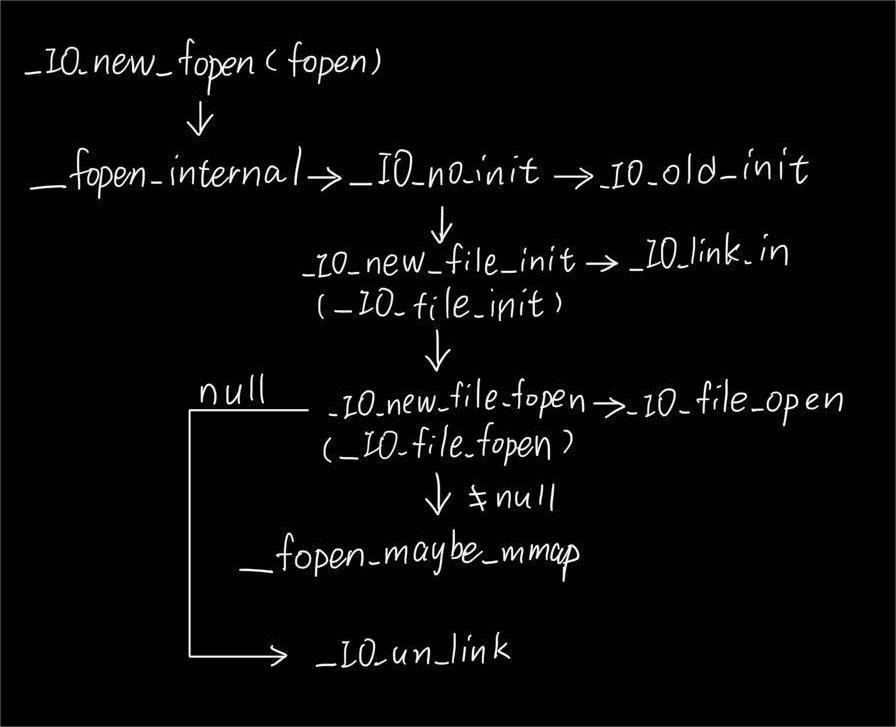 _IO_new_fopen (fopen)
↓
__fopen_internal → _IO_no_init → _IO_old_init
↓
_IO_new_file_init → _IO_link_in
(_IO_file_init)
↓
null
_IO_new_file_fopen → _IO_file_open
(_IO_file_fopen)
↓ ≠null
__fopen_maybe_mmap
_IO_un_link